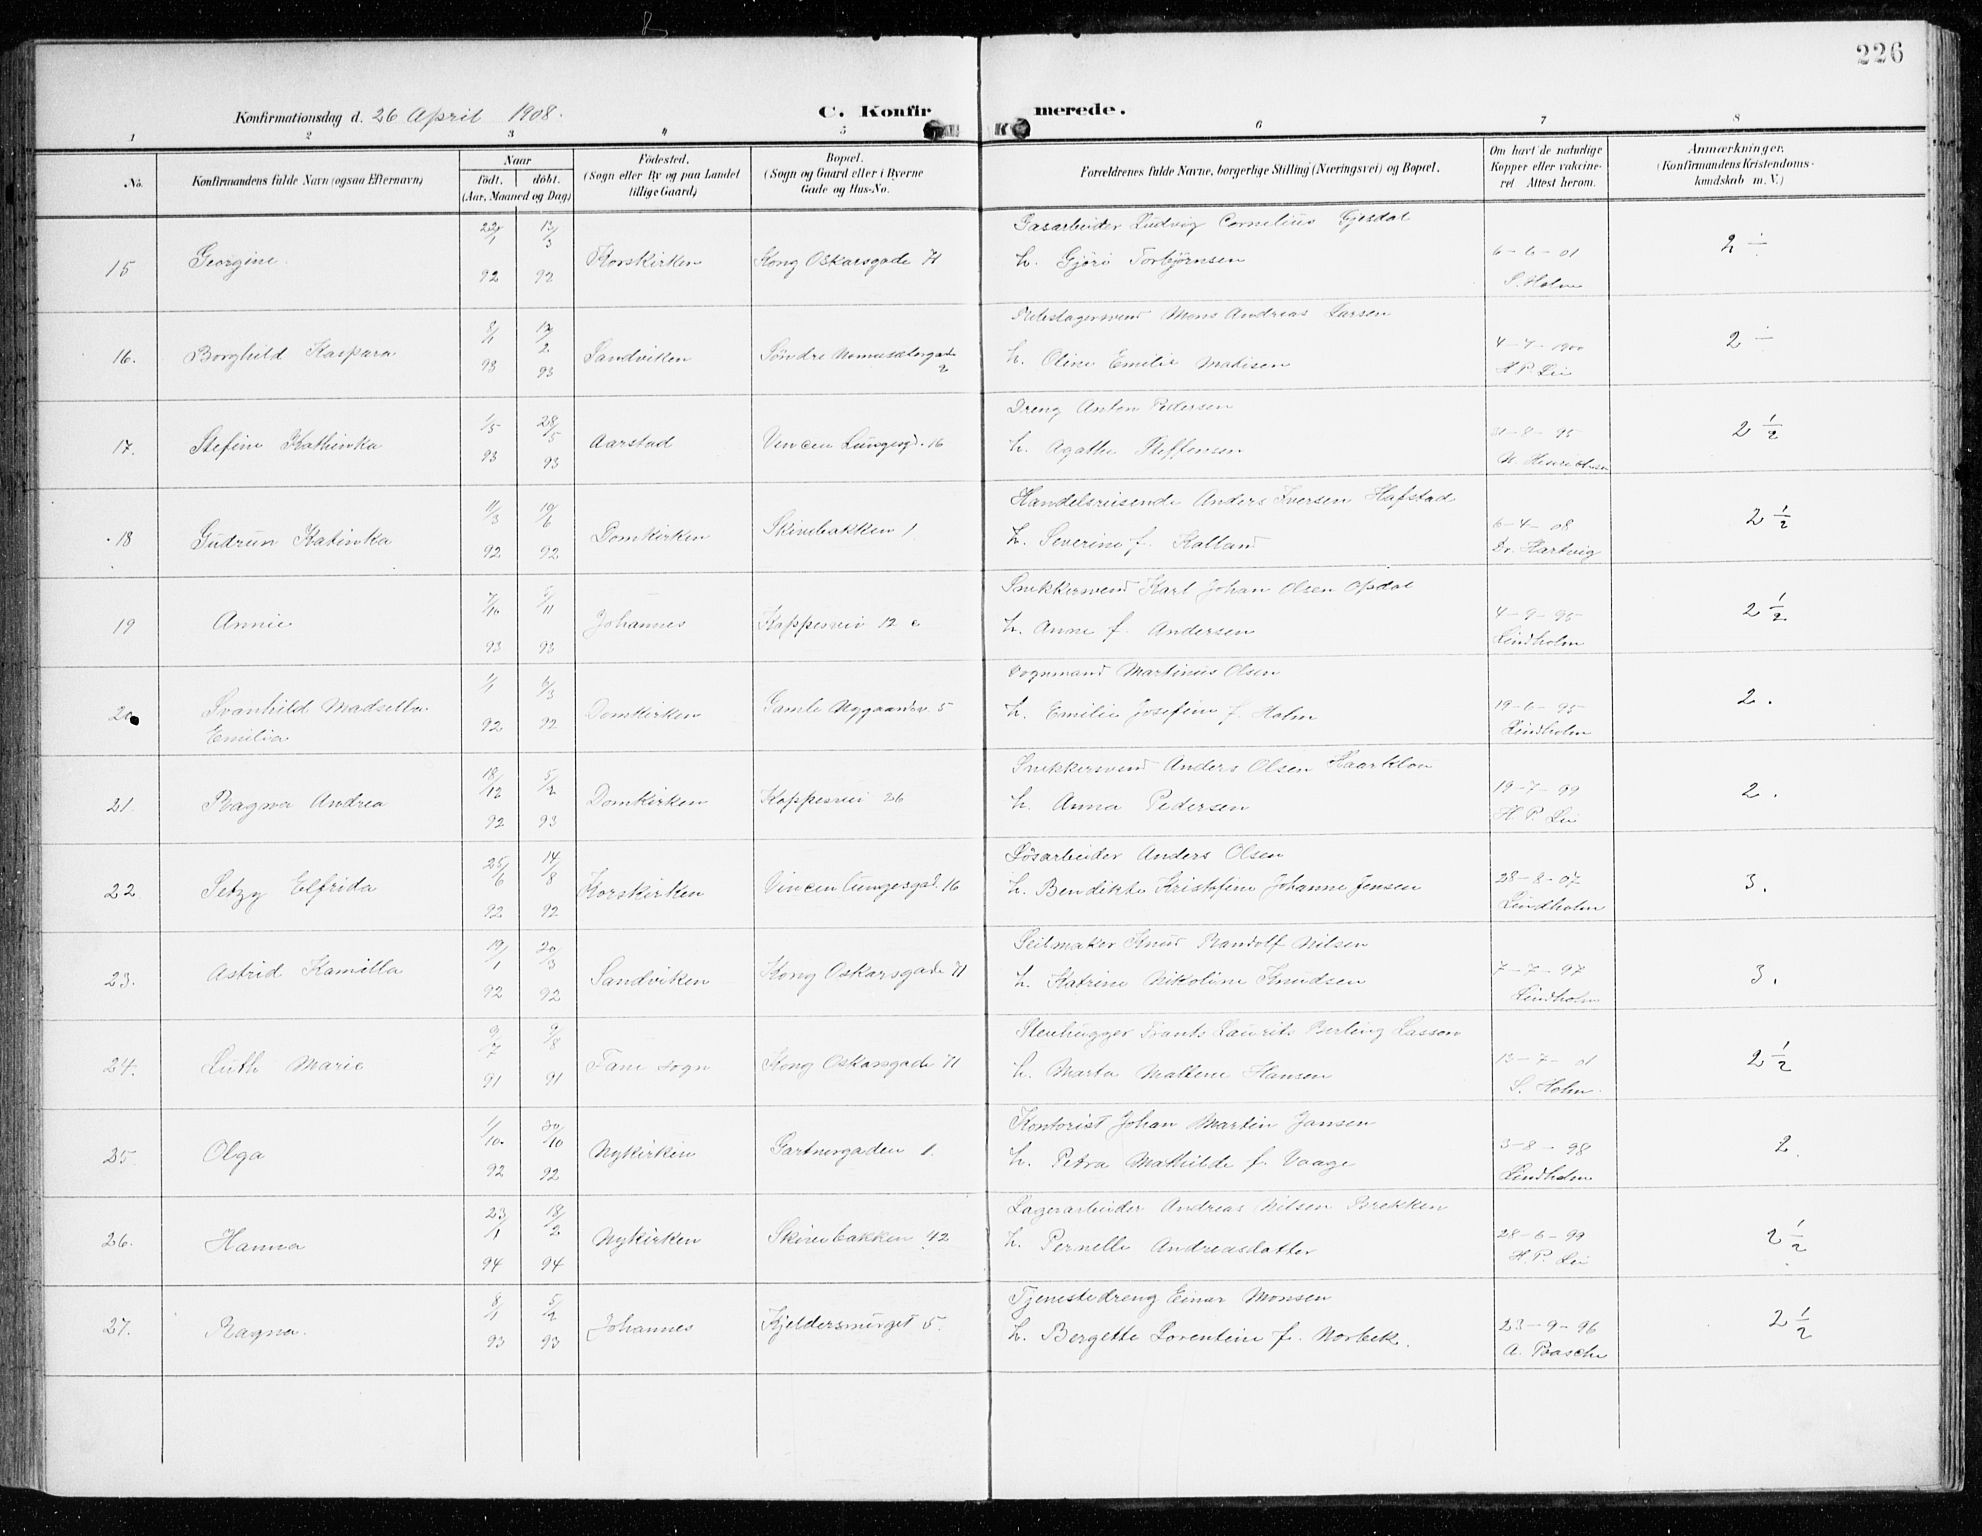 226
Konfirmationsdag d. 26 April 1908.
C. Konfirmerede.
1 2 3 4 5 6 7 8
No.
Konfirmandens fulde Navn (ogsaa Efternavn)
Naar
født. døbt.
(Aar, Maaned og Dag)
Födested.
(Sogn eller By og paa Landet
tillige Gaard)
Bopæl.
(Sogn og Gaard eller i Byerne
Gade og Hus-No.
Forældrenes fulde Navne, borgerlige Stilling (Næringsvei) og Bopæl.
Om havt de naturlige
Kopper eller vakcine-
ret Attest herom.
Anmærkninger.
(Konfirmandens Kristendoms-
kundskab m. V.)
15 Georgine. 22/1 92 13/3 92 Korskirken Kong Oskarsgade 71
Gasarbeider Ludvig Cornelius Gjesdal
h. Gjöri Torbjörnsen
6-6-01
S. Holm
2 ÷
16. Borghild Kaspara 8/1 93 12/2 93 Sandviken Söndre 2
Mons Andreas Larsen
h. Oline Emilie Madisen
4-7-1900
H. P. Lie
2 ÷
17. Stefine Kathinka 1/5 93 28/5 93 Aarstad Vincen Lungesgd. 16
Dreng Anton Pedersen
h. Agathe Steffensen
31-8-95
N. Henrichsen
2 1/2
18 Gudrun Katinka 11/3 92 19/6 92 Domkirken Skivebakken 1
Handelsreisende Anders Iversen Hafstad
h. Severine f. Kalland
6-4-08
Dr. Hartvig
2 1/2
19 Annie 7/10 93 5/11 93 Johannes Kappesvei 12 c
Snikkersvend Karl Johan Olsen Opdal
h. Anne f. Andersen
4-9-95
Lindholm
2 1/2
20 Svanhild Madsella
Emilia
1/1 92 6/3 92 Domkirken Gamle Nygaardsv. 5
Vognmand Martinus Olsen
h. Emilie Josefine f. Holm
19-6-95
Lindholm
2.
21. Ragna Andrea 18/12 92 5/2 93 Domkirken Kappesvei 26
Snikkersvend Anders Olsen Haarklou
h. Anna Pedersen
19-7-99
H. P. Lie
2.
22. Setzy Elfrida 25/6 92 14/8 92 Korskirken Vincen Lungesgad. 16
Lösarbeider Anders Olsen
h. Bendikte Kristofine Johanne Jensen
28-8-07
Lindholm
3.
23. Astrid Kamilla 19/1 92 20/3 92 Sandviken Kong Oskarsgade 71
Seilmaker Knud Randolf Nilsen
h. Katrine Nikoline Knudsen
7-7-97
Lindholm
3.
24. Ruth Marie 9/7 91 9/8 91 Fane sogn Kong Oskarsgade 71
Stenhugger Frants Laurits Berling Lasson
h. Marta Maltene Hansen
13-7-01
S. Holm.
2 1/2
25 Olga 1/10. 92 30/10 92 Nykirken Gartnergaden 1.
Kontorist Johan Martin Jansen
h. Petra Mathilde f. Vaage
3-8-98
Lindholm
2.
26. Hanna 23/1 94 18/2 94 Nykirken Skivebakken 42
Lagerarbeider Andreas Nilsen Brekken
h. Pernelle Andreasdatter
28-6-99
H. P. Lie
2 1/2
27. Ragna. 8/1 93 5/2 93 Johannes Kjeldersmuget 5.
Tjenestedreng Einar Monsen
h. Bergette Lorentine f. Norbek.
23-9-96
A. Paasche
2 1/2